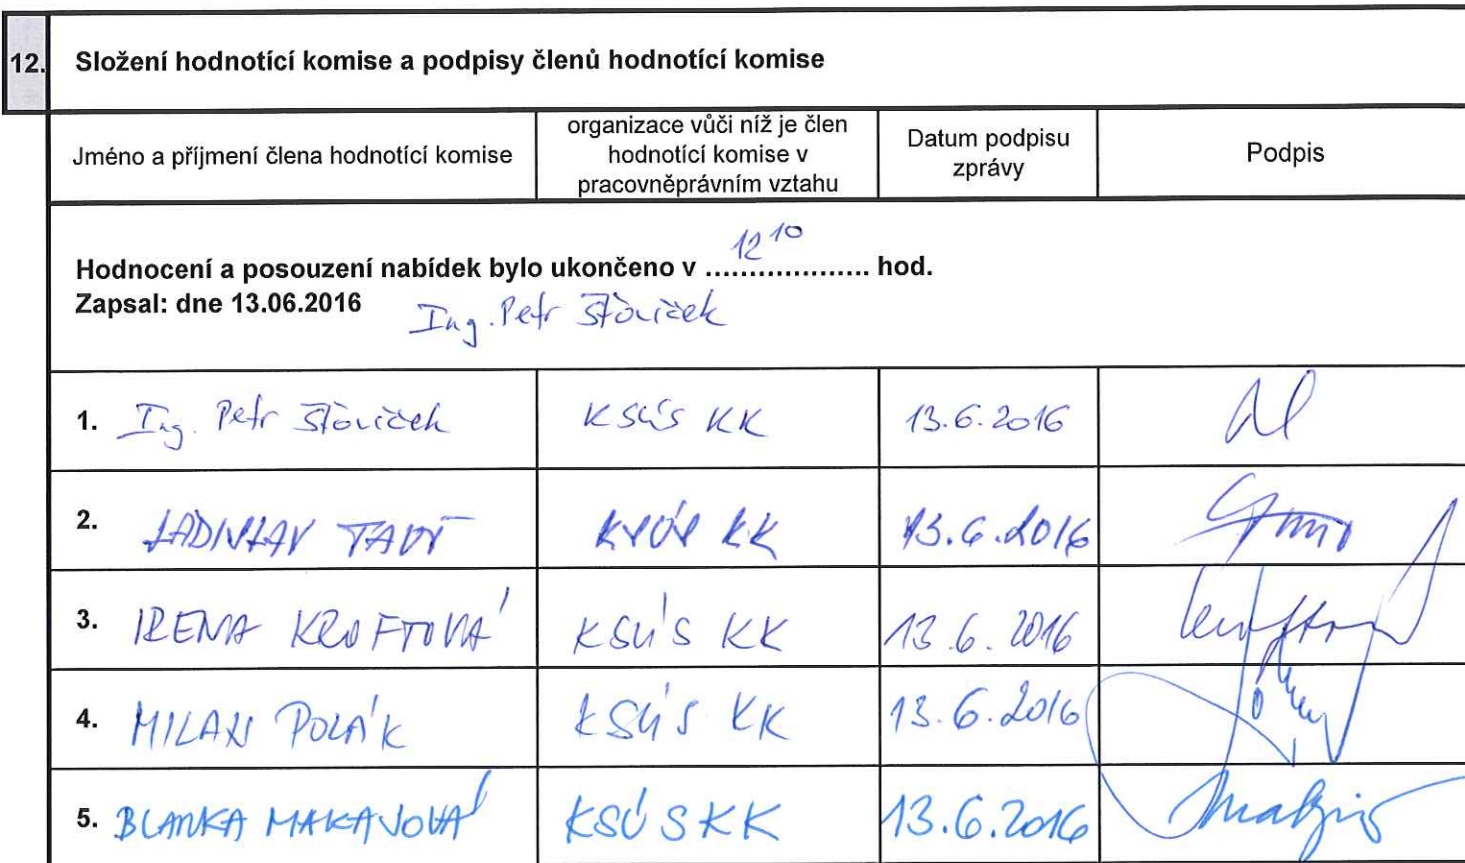 12. Složení hodnotící komise a podpisy členů hodnotící komise
Jméno a příjmení člena hodnotící komise
organizace vůči níž je člen
hodnotící komise v
pracovněprávním vztahu
Datum podpisu
zprávy
Podpis
12 10
Hodnocení a posouzení nabídek bylo ukončeno v .................. hod.
Zapsal: dne 13.06.2016 Ing. Petr Šťovíček
1. Ing. Petr Šťovíček KSÚS KK 13.6.2016
2. LADISLAV KSÚS KK 13.6.2016
3. IRENA KROFTOVÁ KSÚS KK 13.6.2016
4. MILAN POLÁK KSÚS KK 13.6.2016
5. BLANKA KSÚS KK 13.6.2016